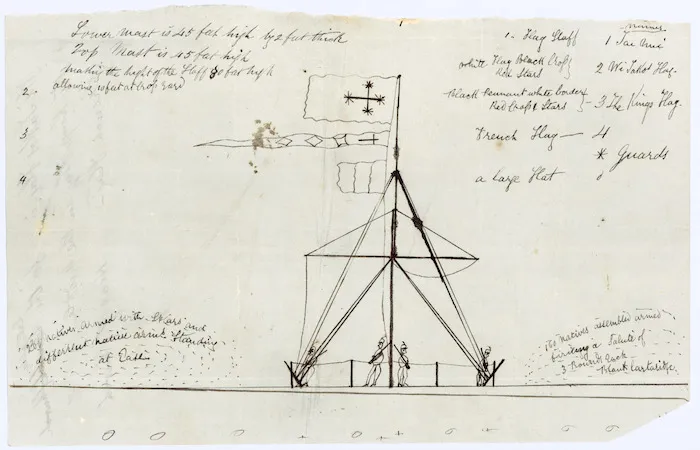 Lower mast is 45 feet high by 2 feet thick
Top Mast is 45 feet high
making the hight of the Staff 80 feet high
allowing 10 feet at Cross Yard
names
1 - Flag Staff 1
White Flag Black Cross
Red Stars
2 Wi Tako's Flag
Black Pennant white border
Red Cross & Stars
3 The Kings Flag
French Flag 4
* Guards
a large Flat
2
3
4
natives armed with Spears and
different native arms Standing
at Ease
160 natives assembled armed
fireing a Salute of
3 Rounds each
Blank Cartridge